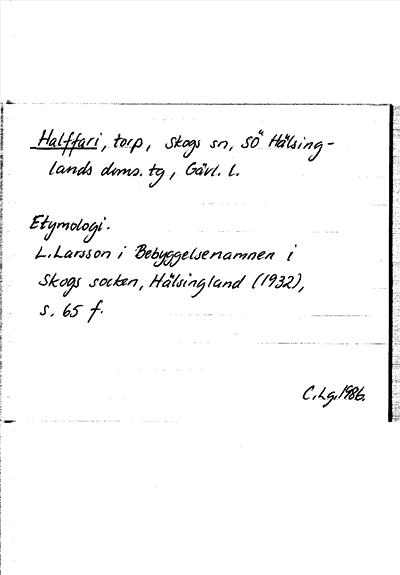 Halffari, torp, Skogs sn, SÖ Hälsing-
lands doms. tg, Gävl. L.
Etymologi.
L. Larsson i Bebyggelsenamnen i
Skogs socken, Hälsingland (1932),
s. 65 f.
C. Lg. 1986.